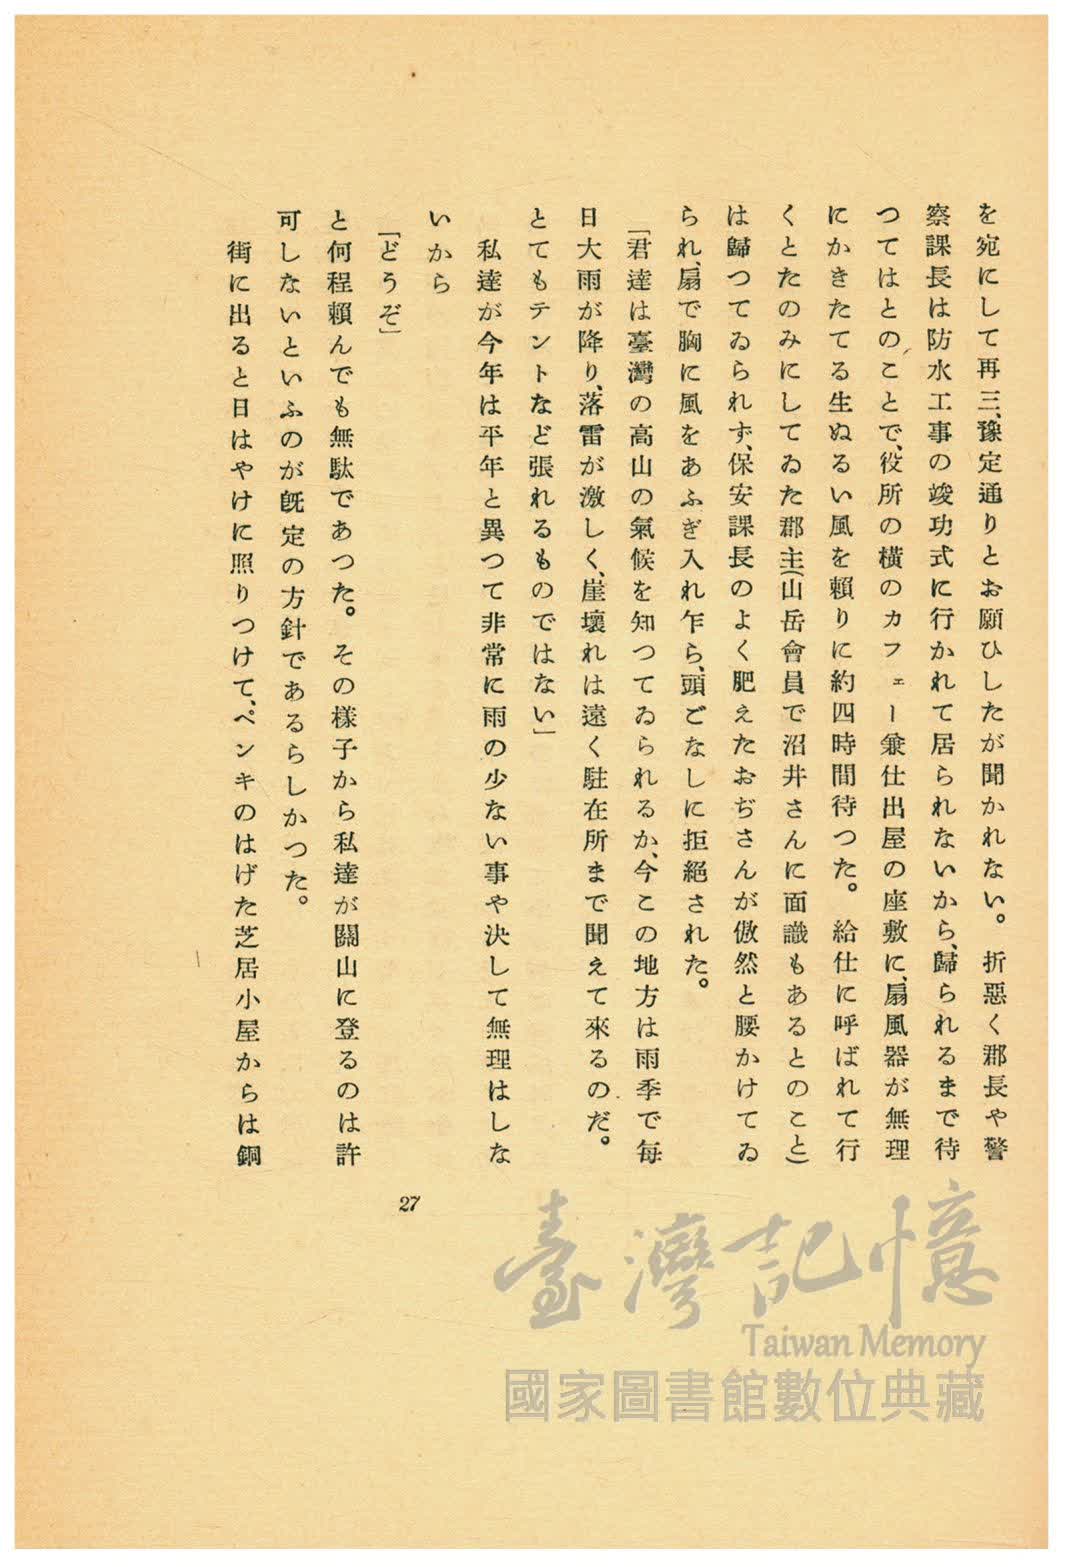 を宛にして再三、豫定通りとお願ひしたが聞かれない。折惡く郡長や警
察課長は防水工事の竣功式に行かれて居られないから、歸られるまで待
つてはとのことで、役所の橫のカフェー兼仕出屋の座敷に、扇風器が無理
にかきたてる生ぬるい風を賴りに約四時間待つた。給仕に呼ばれて行
くとたのみにしてゐた郡主(山岳會員で沼井さんに面識もあるとのこと)
は歸つてゐられず、保安課長のよく肥えたおぢさんが倣然と腰かけてゐ
られ、扇で胸に風をあふぎ入れ乍ら、頭ごなしに拒絕された。
「君達は臺灣の高山の氣候を知つてゐられるか、今この地方は雨季で每
日大雨が降り、落雷が激しく、崖壞れは遠く駐在所まで聞えて來るのだ。
とてもテントなど張れるものではない」
私達が今年は平年と異つて非常に雨の少ない事や決して無理はしな
いから
「どうぞ」
と何程賴んでも無駄であつた。その樣子から私達が關山に登るのは許
可しないといふのが旣定の方針であるらしかつた。
街に出ると日はやけに照りつけて、ペンキのはげた芝居小屋からは銅
27
臺灣記憶
Taiwan Memory
國家圖書館數位典藏